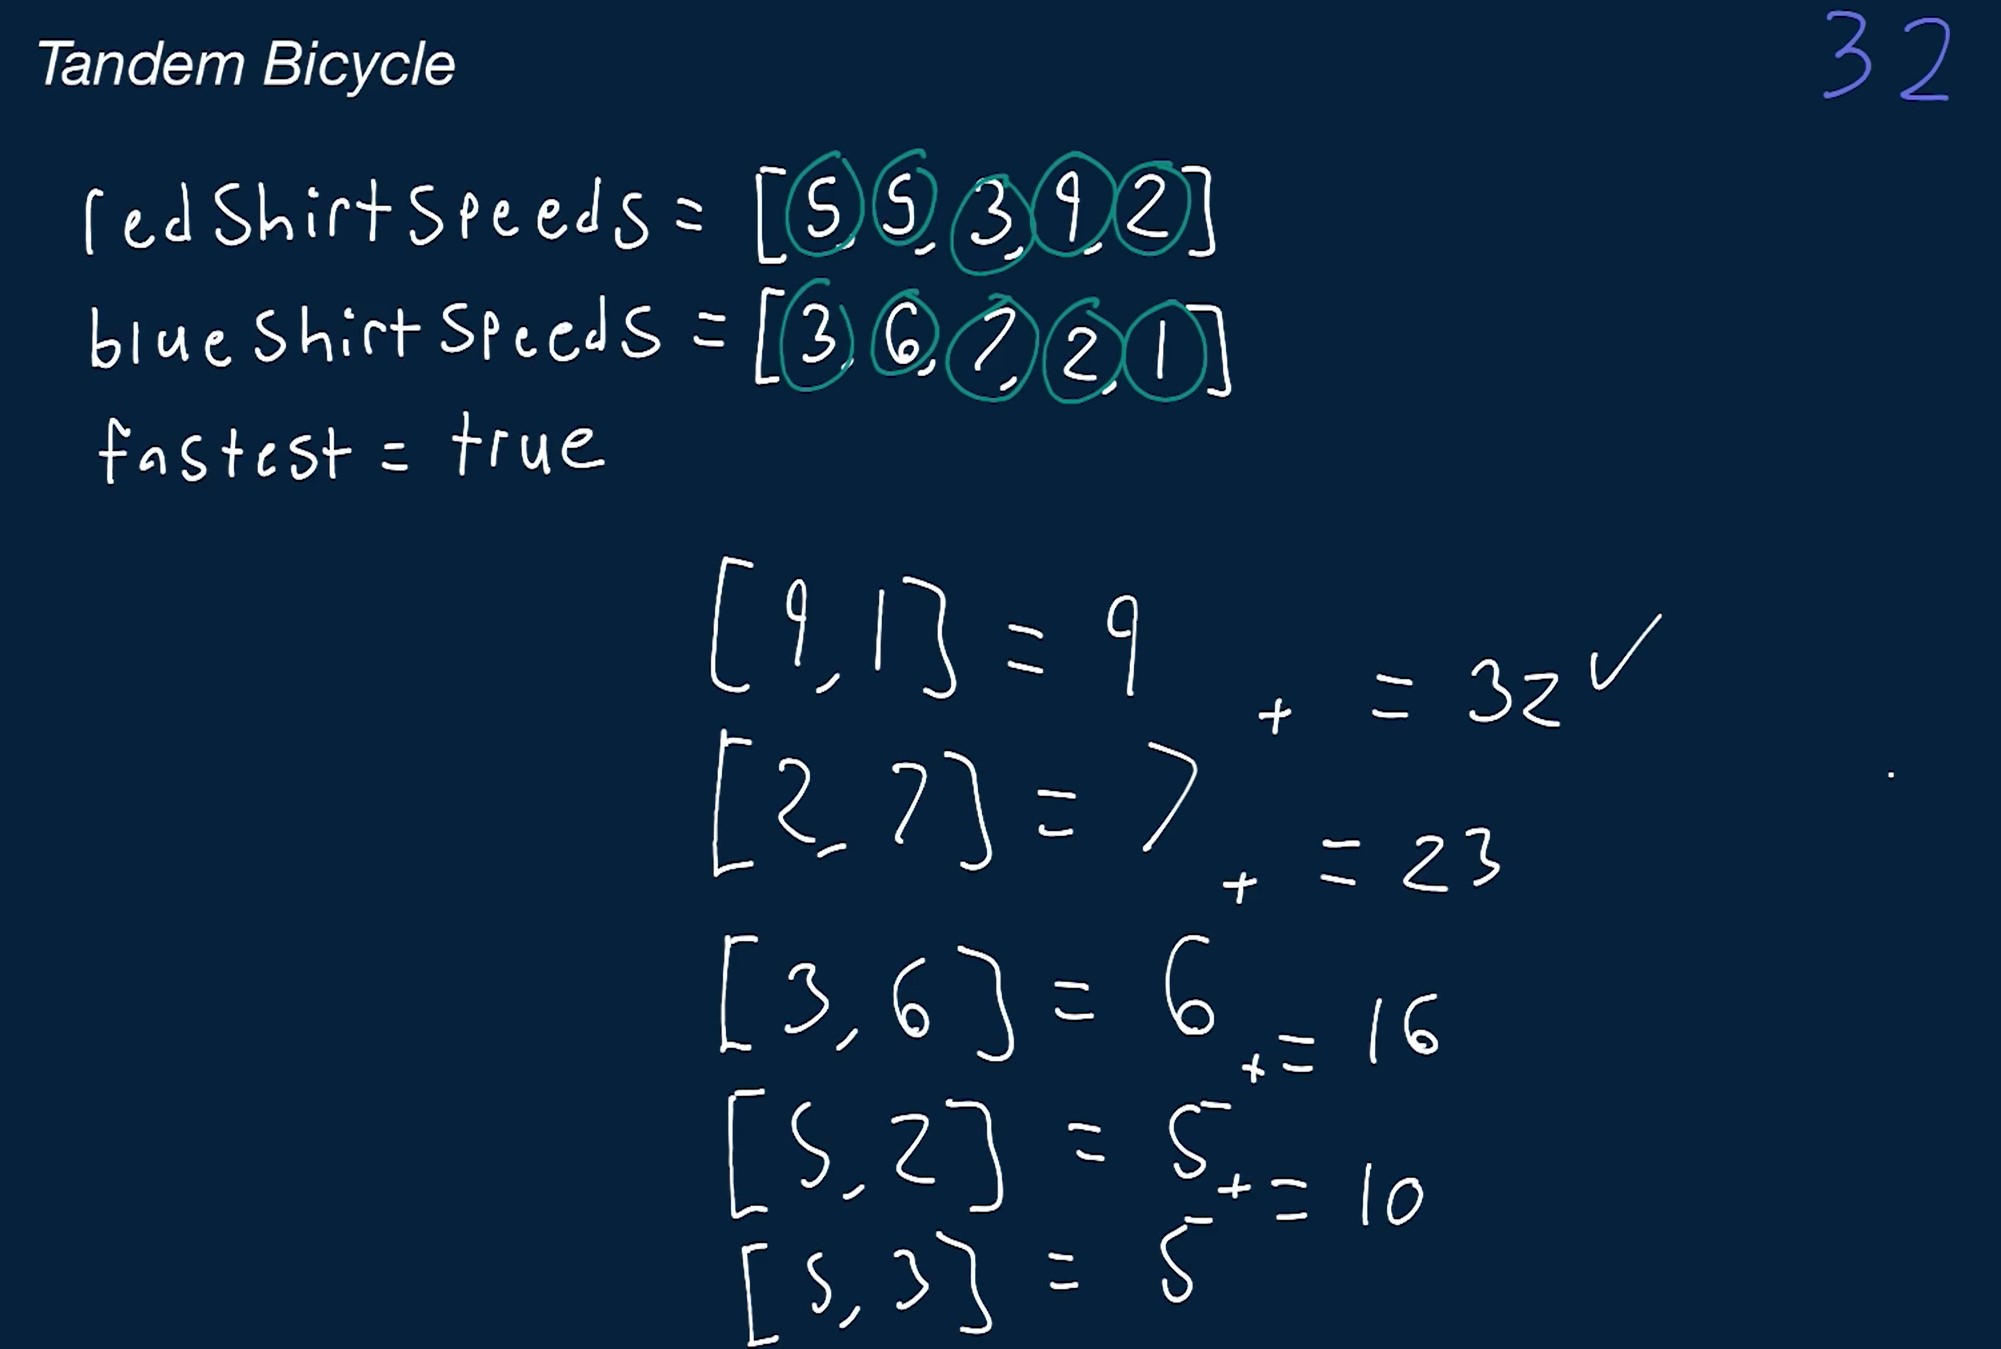 Tandem Bicycle
32
redShirtSpeeds = [5, 5, 3, 9, 2]
blueShirtSpeeds = [3, 6, 7, 2, 1]
fastest = true
[9, 1] = 9
+ = 32 ✓
[2, 7] = 7
+ = 23
[3, 6] = 6
+ = 16
[5, 2] = 5
+ = 10
[5, 3] = 5